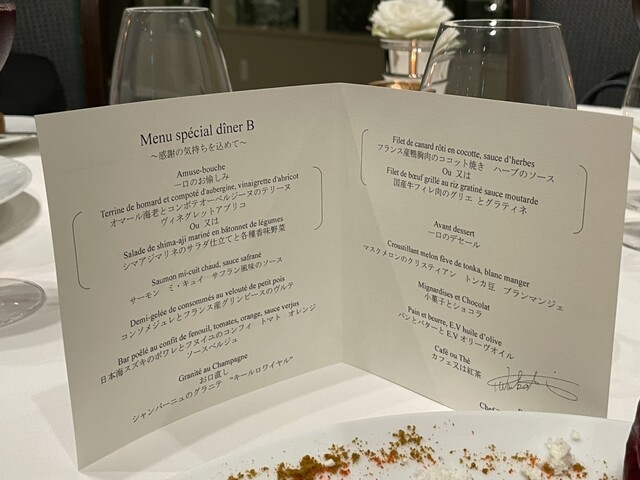 Menu spécial dîner B
～感謝の気持ちを込めて～
Amuse-bouche
一口のお愉しみ
Terrine de homard et compoté d'aubergine, vinaigrette d'abricot
オマール海老とコンポテオーベルジーヌのテリーヌ
ヴィネグレットアブリコ
Ou 又は
Salade de shima-aji mariné en bâtonnet de légumes
シマアジマリネのサラダ仕立てと各種香味野菜
Saumon mi-cuit chaud, sauce safrané
サーモン ミ・キュイ―サフラン風味のソース
Demi-gelée de consommés au velouté de petit pois
コンソメジュレとフランス産グリンピースのヴルテ
Bar poêlé au confit de fenouil, tomates, orange, sauce verjus
日本海スズキのポワレとフヌイユのコンフィ トマト オレンジ
ソースベルジュ
Granité au Champagne
お口直し
シャンパーニュのグラニテ “キールロワイヤル”
Filet de canard rôti en cocotte, sauce d'herbes
フランス産鴨胸肉のココット焼き ハーブのソース
Ou 又は
Filet de bœuf grillé au riz gratiné sauce moutarde
国産牛フィレ肉のグリエ とグラティネ
Avant dessert
一口のデセール
Croustillant melon fève de tonka, blanc manger
マスクメロンのクリスティアン トンカ豆 ブランマンジェ
Mignardises et Chocolat
小菓子とショコラ
Pain et beurre, E.V huile d'olive
パンとバターとＥＶオリーヴオイル
Café ou Thé
カフェ又は紅茶